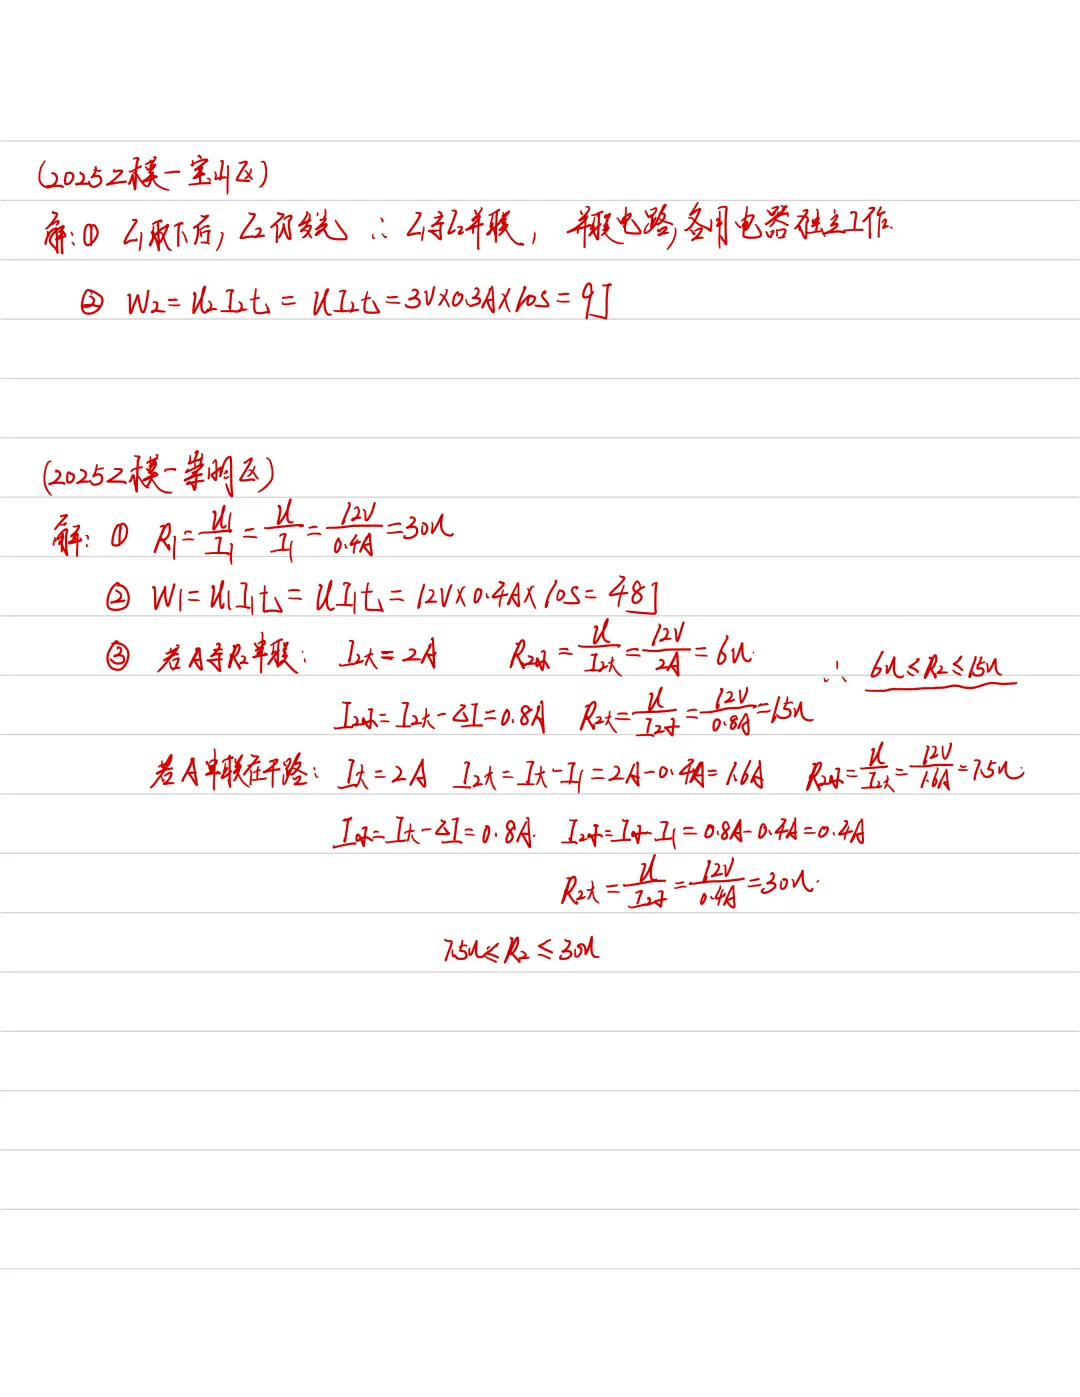 (2025二模-宝山区)
解:① L₁取下后, L₂仍发光 ∴ L₁与L₂并联, 并联电路,各用电器独立工作.
② W₂=U₂I₂t=UI₂t=3V×0.3A×10s=9J
(2025二模-崇明区)
解:① R₁=U₁/I₁=U/I₁=12V/0.4A=30Ω
② W₁=U₁I₁t=UI₁t=12V×0.4A×10s=48J
③ 若A与R₂串联: I₂大=2A R₂小=U/I₂大=12V/2A=6Ω. ∴ 6Ω≤R₂≤15Ω
I₂小=I₂大-ΔI=0.8A R₂大=U/I₂小=12V/0.8A=15Ω
若A串联在干路: I大=2A I₂大=I大-I₁=2A-0.4A=1.6A R₂小=U/I₂大=12V/1.6A=7.5Ω.
I小=I大-ΔI=0.8A. I₂小=I小-I₁=0.8A-0.4A=0.4A
R₂大=U/I₂小=12V/0.4A=30Ω.
7.5Ω≤R₂≤30Ω